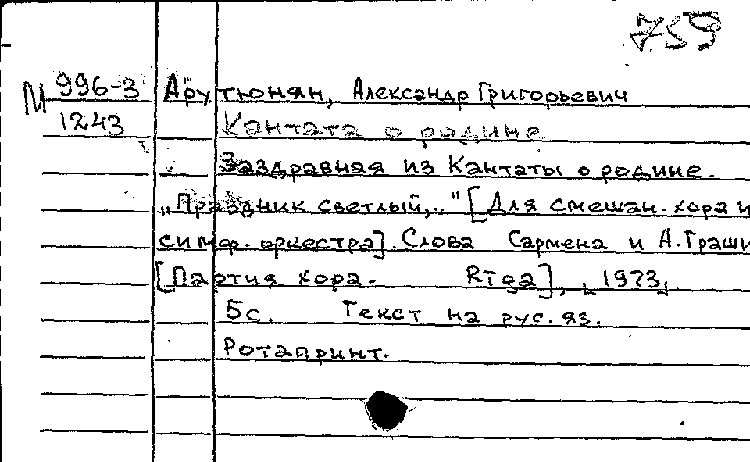 759
М 996-3 Арутюнян, Александр Григорьевич
1243 Кантата о родине
Заздравная из Кантаты о родине.
„Праздник светлый,.." [Для смешан. хора и
симф. оркестра]. Слова Сармена и А. Граши
[Партия хора. Rīga], 1973.
5с. Текст на рус. яз.
Ротапринт.